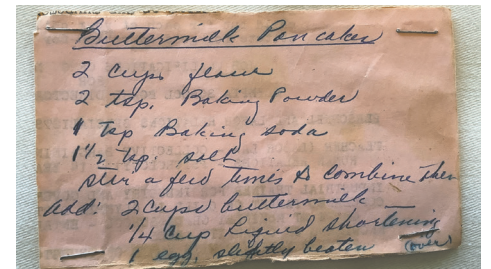 Buttermilk Pancakes
2 cups flour
2 tsp. Baking Powder
1 tsp Baking soda
1 1/2 tsp. salt
stir a few times to combine then
add: 2 cups buttermilk
1/4 cup liquid shortening
1 egg, slightly beaten (over)